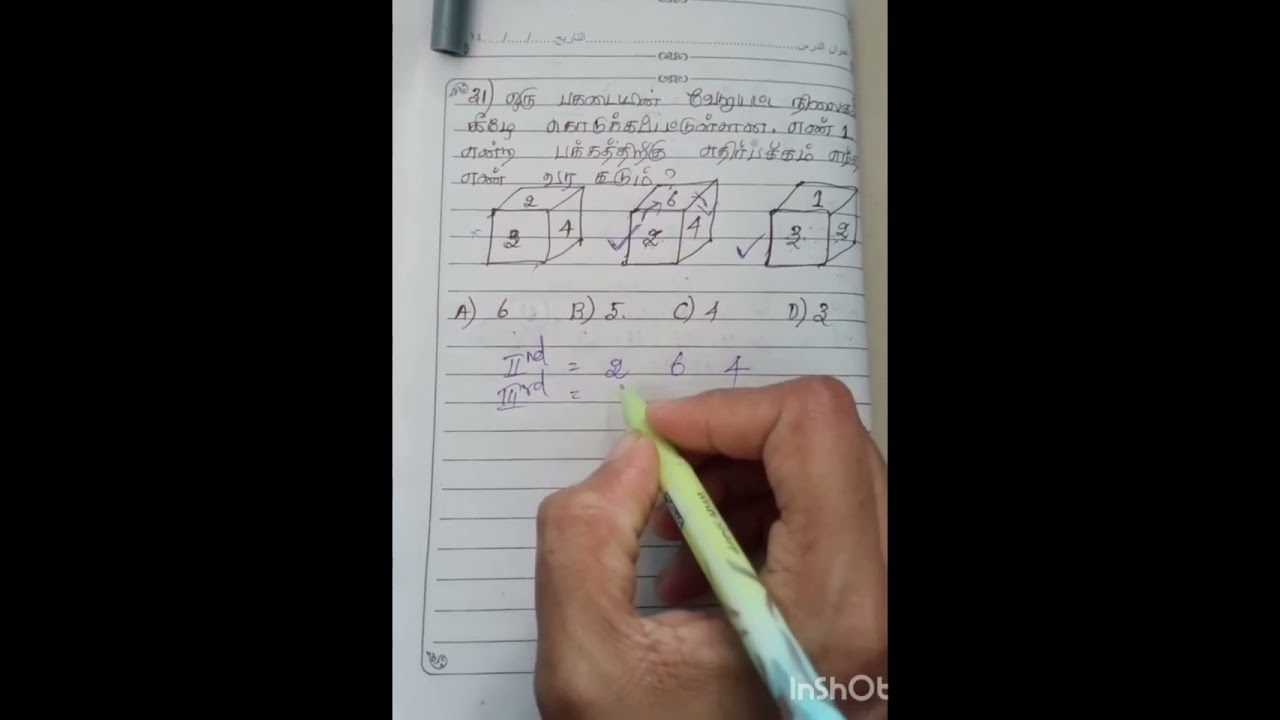 عنوان الدرس التاريخ / / ١٤
21) ஒரு பகடையின் வேறுபட்ட நிலைகள்
கீழே கொடுக்கப்பட்டுள்ளன. எண் 1
என்ற பக்கத்திற்கு எதிர்பக்கம் எந்த
எண் வர கூடும்?
2 6 1
3 4 2 4 3 2
A) 6 B) 5. C) 4 D) 3
IInd = 2 6 4
IIIrd =
InShOt